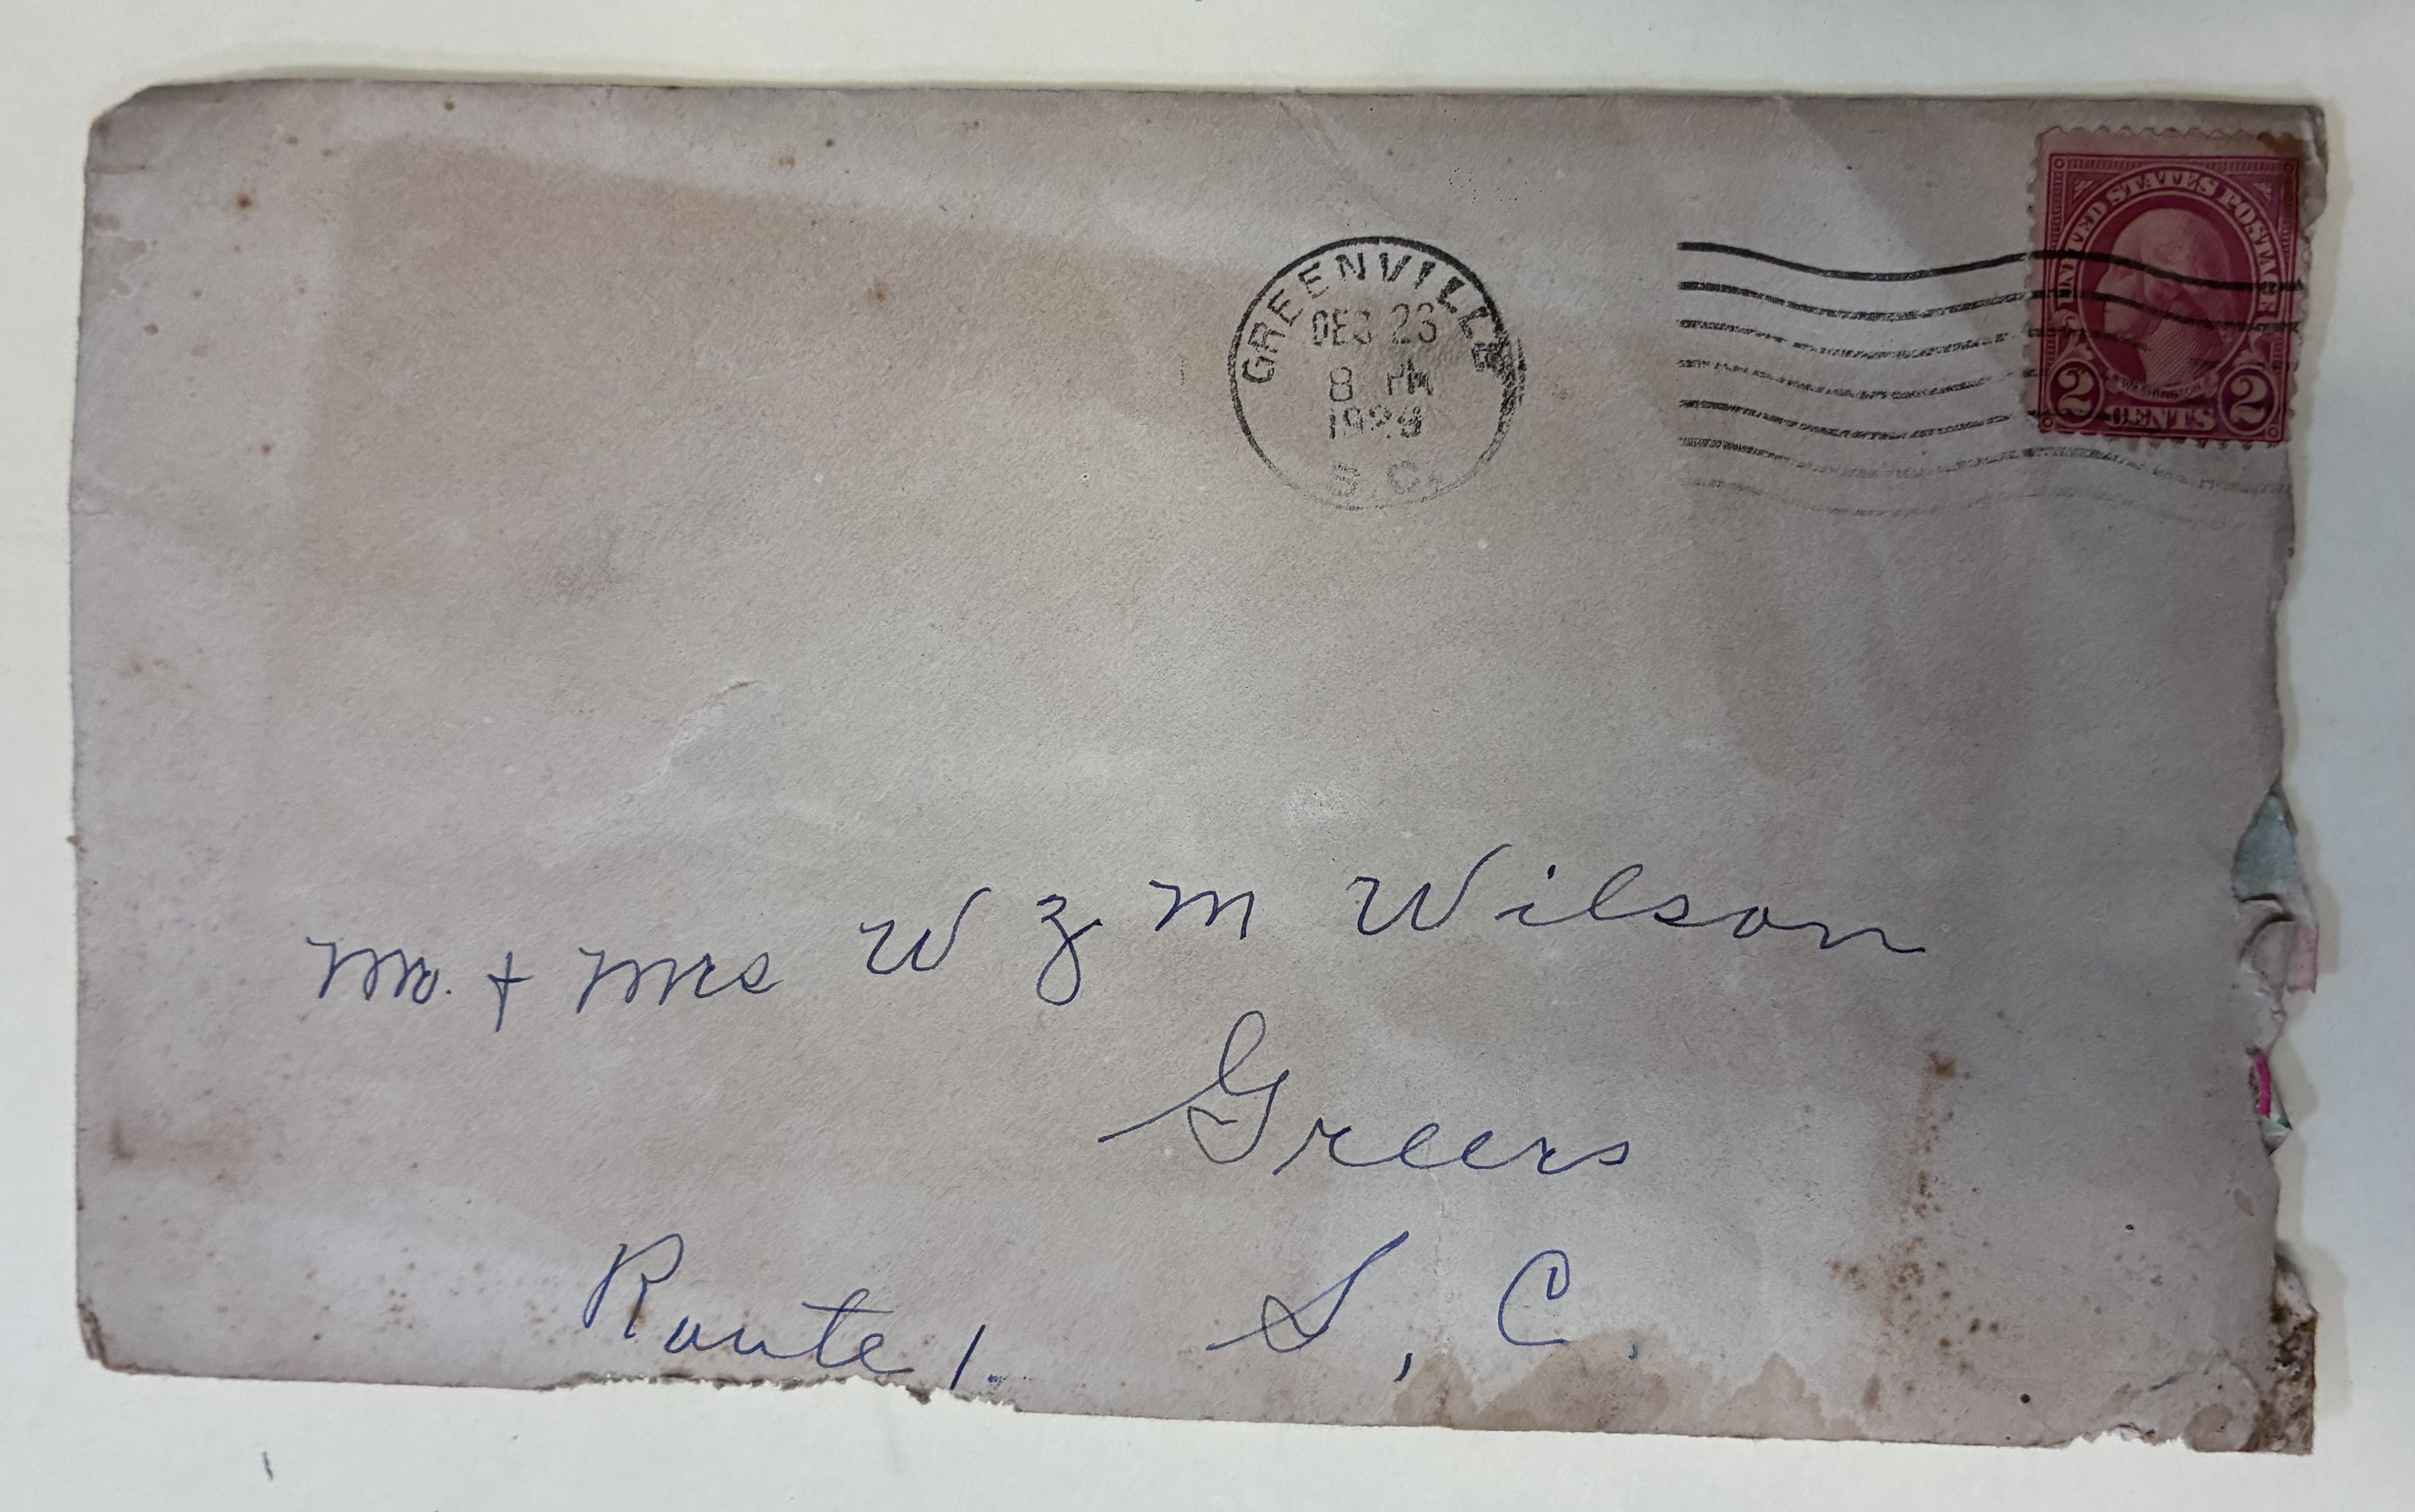 GREENVILLE
DEC 23
8 PM
S.C.
UNITED STATES POSTAGE
WASHINGTON
2 CENTS 2
Mr. + Mrs W Z M Wilson
Greers
Route 1. S, C.